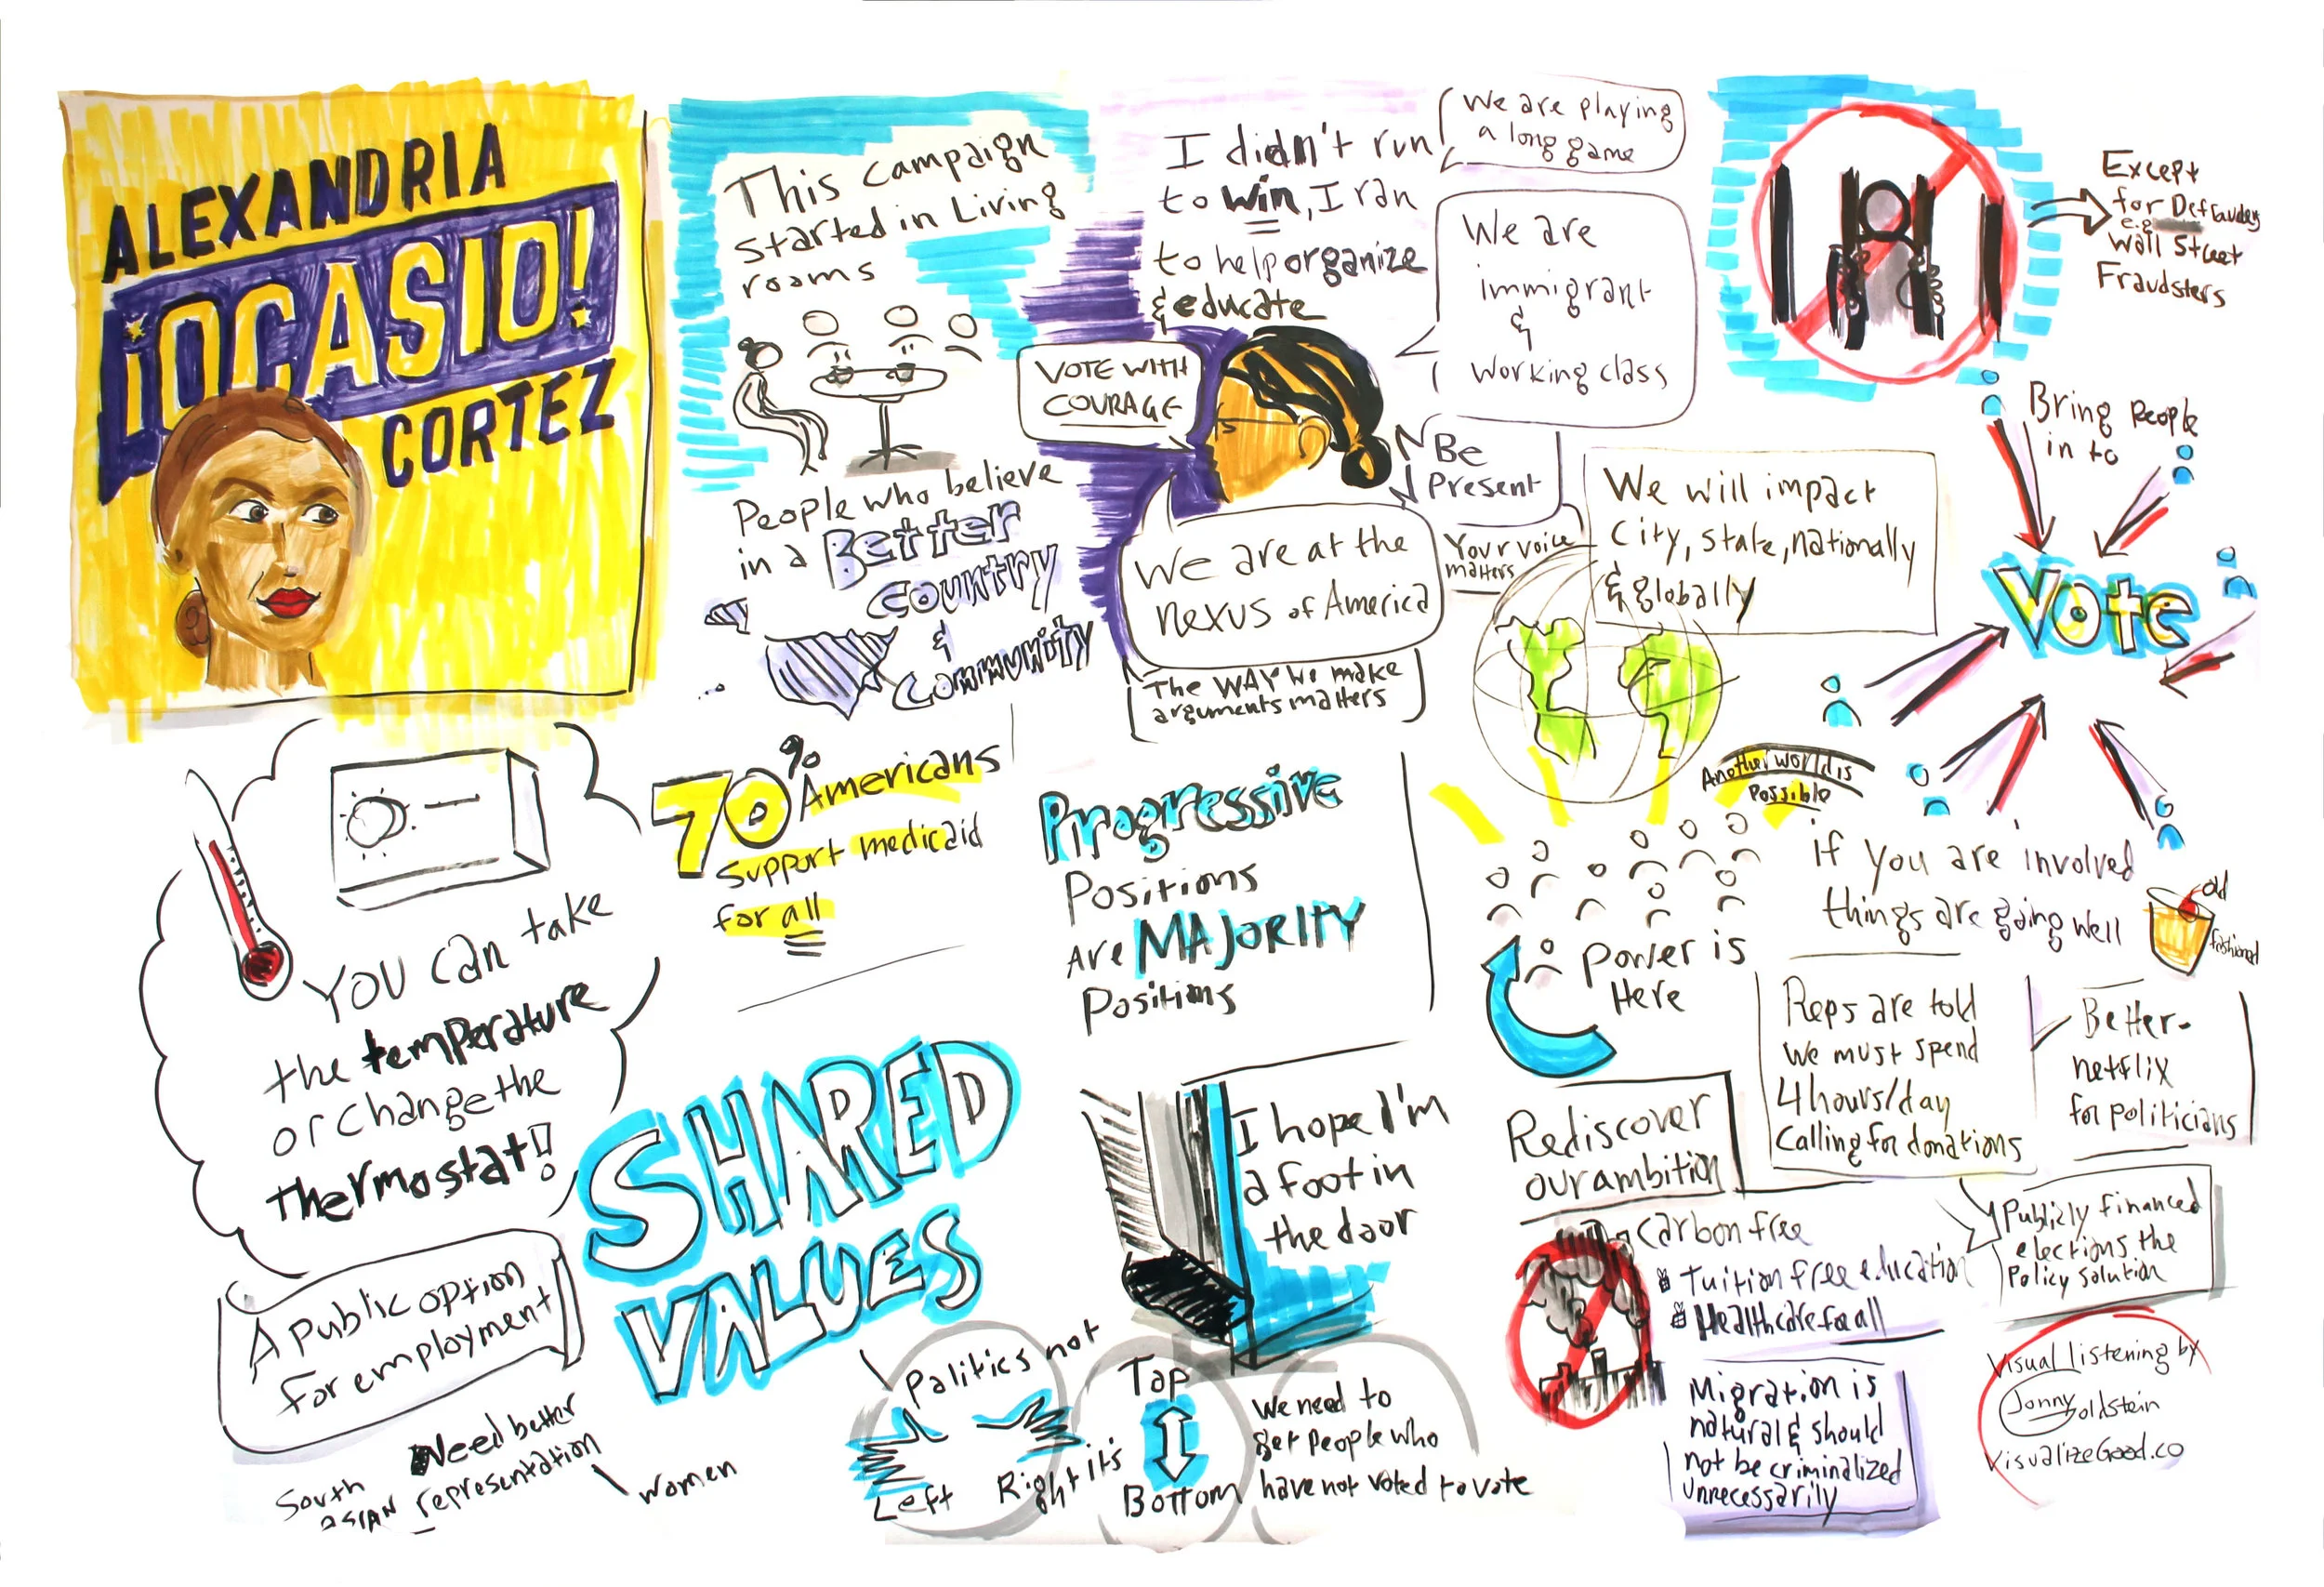 ALEXANDRIA
¡OCASIO!
CORTEZ
This campaign
started in Living
rooms
People who believe
in a Better
country
&
community
I didn't run
to win, I ran
to help organize
& educate
We are playing
a long game
VOTE WITH
COURAGE
We are
immigrant
&
working class
Be
Present
Your voice
matters
We are at the
nexus of America
The WAY we make
arguments matters
We will impact
City, state, nationally
& globally
Except
for Defrauders
e.g.
Wall Street
Fraudsters
Bring People
in to
Vote
You can take
the temperature
or change the
thermostat!!
70% Americans
support medicaid
for all
Progressive
Positions
Are MAJORITY
Positions
Another world is
Possible
Power is
Here
if you are involved
things are going well
old
fashioned
Reps are told
we must spend
4 hours/day
calling for donations
Better-
netflix
for politicians
Publicly financed
elections the
Policy solution
SHARED
VALUES
I hope I'm
a foot in
the door
Rediscover
our ambition
Carbon free
Tuition free education
Healthcare for all
Migration is
natural & should
not be criminalized
unnecessarily
A public option
for employment
Need better
South
ASIAN representation
Women
Politics not
Left Right it's
Top
Bottom
We need to
get people who
have not voted to vote
Visual listening by
Jonny Goldstein
VisualizeGood.co